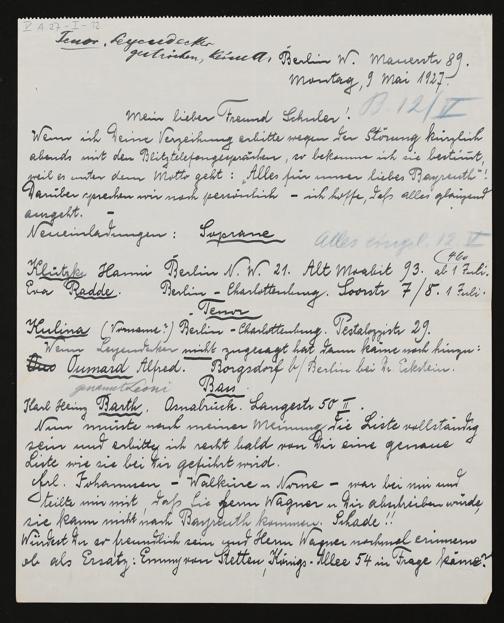 V A 27 - I - 12
Tenor, Leyendecker
gestrichen, keine A.
Berlin W. Mauerstr 89.
Montag, 9 Mai 1927.
B. 12/V
Mein lieber Freund Schuler!
Wenn ich Deine Verzeihung erbitte wegen der Störung kürzlich
abends mit den Blitztelefongesprächen, so bekomme ich sie bestimmt,
weil es unter dem Motto geht: "Alles für unser liebes Bayreuth"!
Darüber sprechen wir noch persönlich - ich hoffe, daß alles glänzend
ausgeht. -
Neueinladungen: Soprane
Alles eingel. 12. V
Klutzke Hanni Berlin N. W. 21. Alt Moabit 93. ab 1 Juli.
Eva Radde. Berlin - Charlottenburg. Soorstr 7/8. 1 Juli.
Tenor
Kulina (Vorname?) Berlin - Charlottenburg. Pestalozzistr 29.
Wenn Leyendecker nicht zugesagt hat dann käme noch hinzu:
Oumard Alfred. Borgsdorf b/Berlin bei Dr. Eckstein.
genannt Leoni
Bass
Karl Heinz Barth. Osnabrück. Langestr 50 II.
Nun müsste nach meiner Meinung die Liste vollständig
sein und erbitte ich recht bald von Dir eine genaue
Liste wie sie bei Dir geführt wird.
Frl. Johannsen - Walküre u Norne - war bei mir und
teilte mir mit, daß sie Herrn Wagner u Dir abschreiben würde,
sie kann nicht nach Bayreuth kommen. Schade!!
Würdest Du so freundlich sein und Herrn Wagner nochmal erinnern
ob als Ersatz: Emmy von Stetten, Königs-Allee 54 in Frage käme?